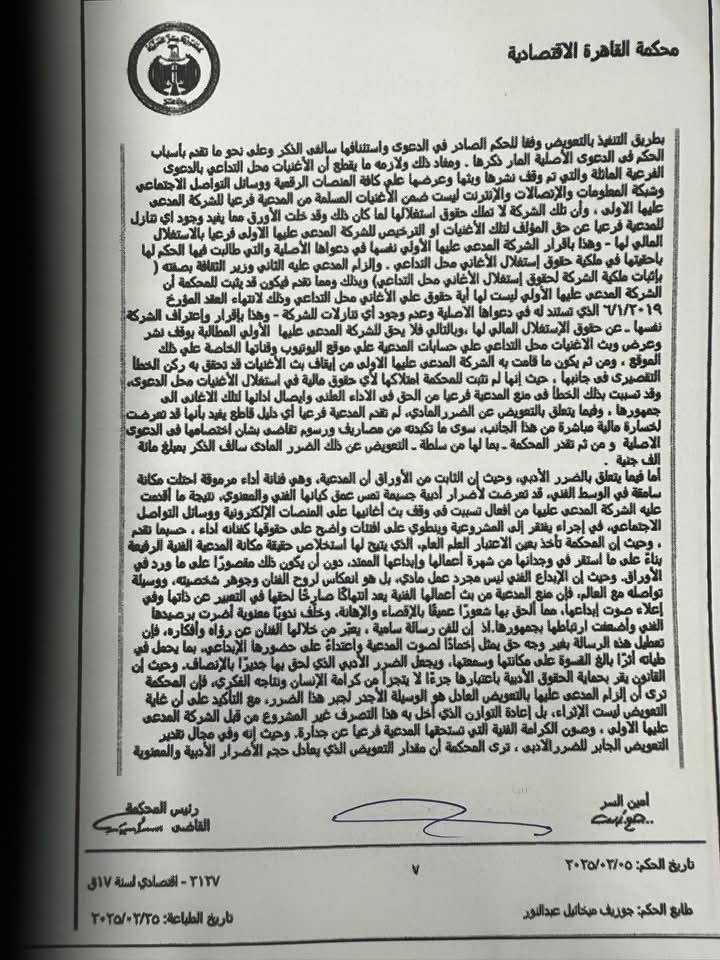 محكمة القاهرة الاقتصادية
بطريق التنفيذ بالتعويض وفقا للحكم الصادر في الدعوى واستئنافها سالفى الذكر وعلى نحو ما تقدم بأسباب
الحكم فى الدعوى الأصلية المار ذكرها . ومفاد ذلك ولازمه ما يقطع أن الأغنيات محل التداعي بالدعوى
الفرعية الماثلة والتي تم وقف نشرها وبثها وعرضها علي كافة المنصات الرقمية ووسائل التواصل الاجتماعي
وشبكة المعلومات والإتصالات والإنترنت ليست ضمن الأغنيات المسلمة من المدعية فرعيا للشركة المدعى
عليها الاولى ، وأن تلك الشركة لا تملك حقوق استغلالها لما كان ذلك وقد خلت الأوراق مما يفيد وجود اي تنازل
للمدعية فرعيا عن حق المؤلف لتلك الأغنيات او الترخيص للشركة المدعى عليها الأولى فرعيا بالاستغلال
المالي لها - وهذا بإقرار الشركة المدعى عليها الأولي نفسها في دعواها الأصلية والتي طالبت فيها الحكم لها
بأحقيتها في ملكية حقوق إستغلال الأغاني محل التداعي . وإلزام المدعي عليه الثاني وزير الثقافة بصفته (
بإثبات ملكية الشركة لحقوق إستغلال الأغاني محل التداعي) وبذلك ومما تقدم فيكون قد يثبت للمحكمة أن
الشركة المدعى عليها الأولي ليست لها أية حقوق علي الأغاني محل التداعي وذلك لانتهاء العقد المؤرخ
٦/١/٢٠١٩ الذي تستند له في دعواها الاصلية وعدم وجود أي تنازلات للشركة - وهذا بإقرار وإعتراف الشركة
نفسها ـ عن حقوق الإستغلال المالي لها ،وبالتالي فلا يحق للشركة المدعي عليها الأولي المطالبة بوقف نشر
وعرض وبث الاغنيات محل التداعي علي حسابات المدعية علي موقع اليوتيوب وقناتها الخاصة علي ذلك
الموقع . ومن ثم يكون ما قامت به الشركة المدعى عليها الاولى من إيقاف بث الأغنيات قد تحقق به ركن الخطأ
التقصيرى فى جانبها ، حيث إنها لم تثبت للمحكمة امتلاكها لأي حقوق مالية في استغلال الأغنيات محل الدعوى،
وقد تسببت بذلك الخطأ فى منع المدعية فرعيا من الحق فى الاداء العلنى وايصال ادائها لتلك الاغانى الى
جمهورها ، وفيما يتعلق بالتعويض عن الضرر المادي، لم تقدم المدعية فرعيا أي دليل قاطع يفيد بأنها قد تعرضت
لخسارة مالية مباشرة من هذا الجانب، سوى ما تكبدته من مصاريف ورسوم تقاضى بشان اختصامها فى الدعوى
الاصلية و من ثم تقدر المحكمة ـ بما لها من سلطة ـ التعويض عن ذلك الضرر المادى سالف الذكر بمبلغ مائة
الف جنية .
أما فيما يتعلق بالضرر الأدبي، وحيث إن الثابت من الأوراق أن المدعية، وهي فنانة أداء مرموقة احتلت مكانة
سامقة في الوسط الفني، قد تعرضت لأضرار أدبية جسيمة تمس عمق كيانها الفني والمعنوي، نتيجة ما أقدمت
عليه الشركة المدعى عليها من افعال تسببت في وقف بث أغانيها على المنصات الإلكترونية ووسائل التواصل
الاجتماعي، في إجراء يفتقر إلى المشروعية وينطوي على افتئات واضح على حقوقها كفنانه اداء ، حسبما تقدم
، وحيث إن المحكمة تأخذ بعين الاعتبار العلم العام، الذي يتيح لها استخلاص حقيقة مكانة المدعية الفنية الرفيعة
بناءً على ما استقر في وجدانها من شهرة أعمالها وإبداعها الممتد، دون أن يكون ذلك مقصورًا على ما ورد في
الأوراق. وحيث إن الإبداع الفني ليس مجرد عمل مادي، بل هو انعكاس لروح الفنان وجوهر شخصيته، ووسيلة
تواصله مع العالم، فإن منع المدعية من بث أعمالها الفنية يعد انتهاكًا صارخًا لحقها في التعبير عن ذاتها وفي
إعلاء صوت إبداعها، مما ألحق بها شعورًا عميقًا بالإقصاء والإهانة، وخلّف ندوبًا معنوية أضرت برصيدها
الفني وأضعفت ارتباطها بجمهورها.اذ إن للفن رسالة سامية ، يعبّر من خلالها الفنان عن رؤاه وأفكاره، فإن
تعطيل هذه الرسالة بغير وجه حق يمثل إخمادًا لصوت المدعية واعتداءً على حضورها الإبداعي، بما يحمل في
طياته أثرًا بالغ القسوة على مكانتها وسمعتها، ويجعل الضرر الأدبي الذي لحق بها جديرًا بالإنصاف. وحيث إن
القانون يقر بحماية الحقوق الأدبية باعتبارها جزءًا لا يتجزأ من كرامة الإنسان ونتاجه الفكري، فإن المحكمة
ترى أن إلزام المدعى عليها بالتعويض العادل هو الوسيلة الأجدر لجبر هذا الضرر، مع التأكيد على أن غاية
التعويض ليست الإثراء، بل إعادة التوازن الذي أخل به هذا التصرف غير المشروع من قبل الشركة المدعى
عليها الأولى ، وصون الكرامة الفنية التي تستحقها المدعية فرعيا عن جدارة. وحيث إنه وفي مجال تقدير
التعويض الجابر للضرر الادبى ، ترى المحكمة أن مقدار التعويض الذي يعادل حجم الأضرار الأدبية والمعنوية
أمين السر
رئيس المحكمة
القاضي
تاريخ الحكم: ٢٠٢٥/٠٢/٠٥
٧
٢١٢٧ - اقتصادي لسنة ١٧ق
طابع الحكم: جوزيف ميخائيل عبدالنور
تاريخ الطباعة: ٢٠٢٥/٠٢/٢٥